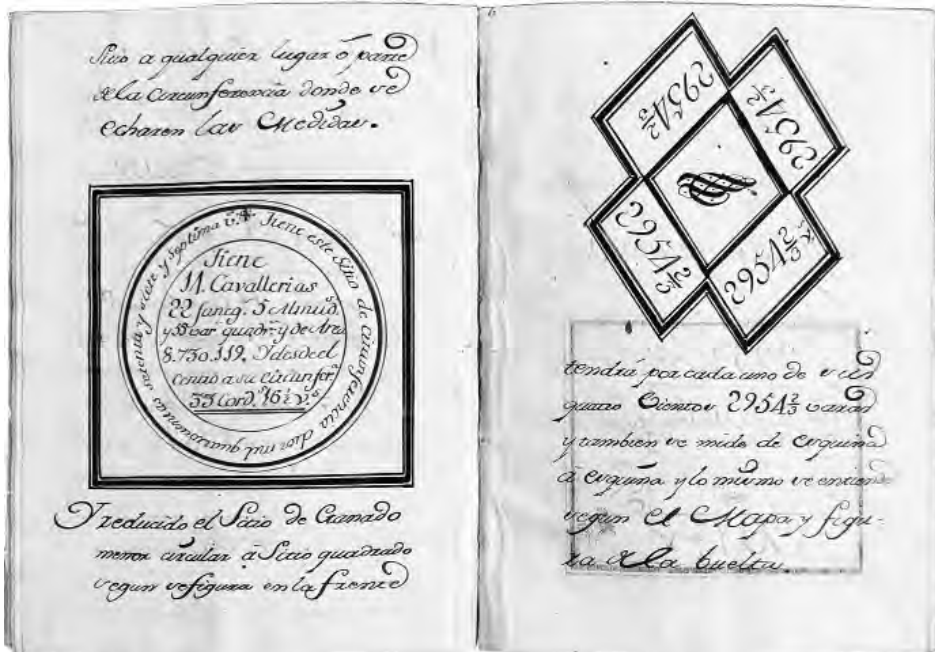 Sitio a qualquier lugar ó parte
de la circunferencia donde se
echaren las Medidas.
Tiene este Sitio de circunferencia diez mil quatrocientas setenta y siete y septima v.s
Tiene
11. Cavallerias
22 faneg.s 5 Almud.s
y 55 var.s quadr.s y de Area
8.730.119. Y desde el
centro a su circunfer.a
33 Cord.s 16½ v.s
Y reducido el Sitio de Ganado
menor circular á Sitio quadrado
segun se figura en la frente
6
2954⅔
2954⅔
2954⅔
2954⅔
tendrá por cada uno de sus
quatro Cientos 2954⅔ varas
y tambien se mide de esquina
á esquina y lo mismo se entiende
segun el Mapa y figu-
ra de la buelta.